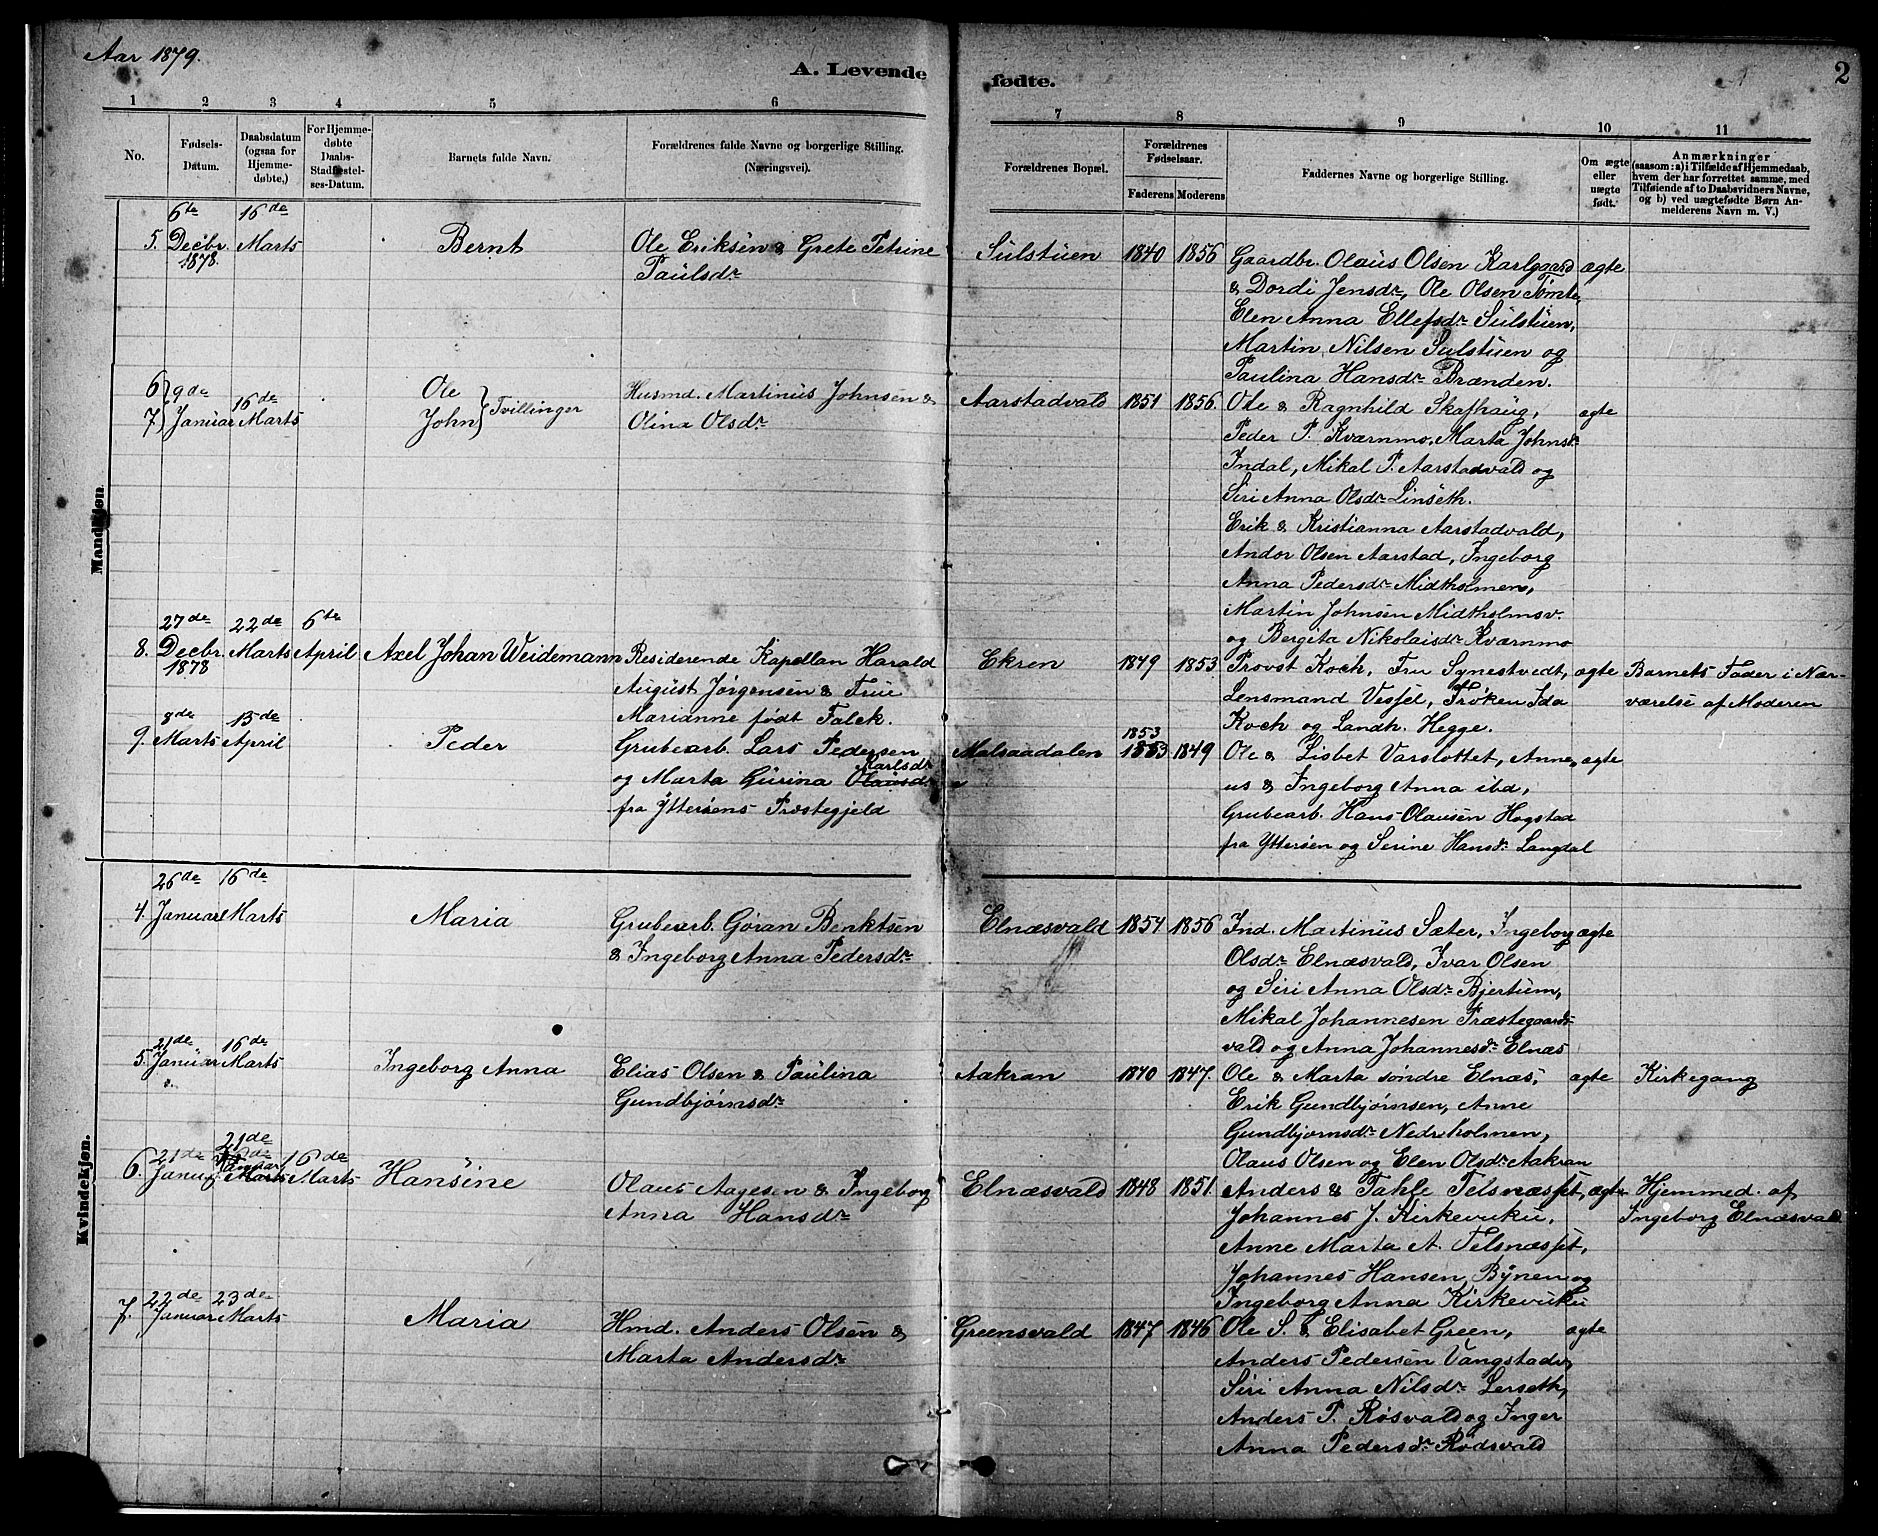 Aar 1879.
A. Levende fødte.
2
1 2 3 4 5 6 7 8 9 10 11
No.
Fødsels-
Datum.
Daabsdatum
(ogsaa for
Hjemme-
døbte,)
For Hjemme-
døbte
Daabs-
Stadfæstel-
ses-Datum.
Barnets fulde Navn.
Forældrenes fulde Navne og borgerlige Stilling.
(Næringsvei).
Forældrenes Bopæl.
Forældrenes
Fødselsaar.
Faderens Moderens
Faddernes Navne og borgerlige Stilling.
Om ægte
eller
uægte
født.
Anmærkninger
(saasom: a) i Tilfælde af Hjemmedaab,
hvem der har forrettet samme, med
Tilføiende af to Daabsvidners Navne,
og b) ved uægtefødte Børn An-
melderens Navn m. V.)
Mandkjøn.
5.
6te
Decbr.
1878.
16de
Marts
Bernt
Ole Eriksen & Grete Petrine
Paulsdr
Sulstuen
1840
1856
Gaardbr. Olaus Olsen Karlgaard
& Dordi Jensdr, Ole Olsen Tømte,
Elen Anna Ellefsdr Sulstuen,
Martin Nilsen Sulstuen og
Paulina Hansdr Brænden.
ægte
6
7
9de
Januar
16de
Marts
Ole
John
Tvillinger
Husmd. Martinus Johnsen &
Olina Olsdr
Aarstadvald
1851
1856.
Ole & Ragnhild Skafhaug,
Peder P. Kværnmo, Marta Johnsdr
Indal, Mikal P. Aarstadvald og
Siri Anna Olsdr Linseth.
Erik & Kristianna Aarstadvald,
Andor Olsen Aarstad, Ingeborg
Anna Pedersdr Midtholmen,
Martin Johnsen Midtholmsv.
og Bergita Nikolaisdr Kværnmo
ægte
8.
27de
Decbr.
1878
22de
Marts
6te
April
Axel Johan Weidemann
Residerende Kapellan Harald
August Jørgensen & Frue
Marianne født Falck.
Ekren
1849
1853.
Provst Koch, Fru Synestvedt,
Lensmand Vessel, Frøken Ida
Koch og Landh. Hegge.
ægte
Barnets Fader i Nær-
værelse af Moderen
9.
8de
Marts
15de
April
Peder
Grubearb. Lars Pedersen
Karlsdr
og Marta Gurina Olausdr
fra Ytterøens Præstegjeld
Malsaadalen
1853
1853
1849
Ole & Lisbet Varslottet, Anne,
us & Ingeborg Anna ibd,
Grubearb. Hans Olausen Hogstad
fra Ytterøen og Serine Hansdr Langdal
ægte
Kvindekjøn.
4.
26de
Januar
16de
Marts
Maria
Grubearb. Gøran Benktsen
& Ingeborg Anna Pedersdr
Elnæsvald
1854
1856
Ind. Martinus Sæter, Ingeborg
Olsdr Elnæsvald, Ivar Olsen
og Siri Anna Olsdr Bjertum,
Mikal Johannesen Præstegaards-
vald og Anna Johannesdr Elnæs
ægte
5.
21de
Januar
16de
Marts
Ingeborg Anna
Elias Olsen & Paulina
Gundbjørnsdr
Aakran
1840
1847.
Ole & Marta søndre Elnæs,
Erik Gundbjørnsen, Anne
Gundbjørnsdr Nedreholmen,
Olaus Olsen og Elen Olsdr Aakran
ægte
Kirkegang
6.
21de
Januar
21de
Januar
16de
Marts
16de
Marts
Hansine
Olaus Aagesen & Ingeborg
Anna Hansdr
Elnæsvald
1848
1851.
Anders & Takle Telsnæsset,
Johannes J. Kirkevuku,
Anne Marta A. Telsnæsset,
Johannes Hansen Bynen og
Ingeborg Anna Kirkevuku
ægte
Hjemmed. af
Ingeborg Elnæsvald
7.
22de
Januar
23de
Marts
Maria
Hmd. Anders Olsen &
Marta Andersdr
Greensvald
1847
1846
Ole S. & Elisabet Green,
Anders Pedersen Vangstadv,
Siri Anna Nilsdr Lerseth,
Anders P. Røsvald og Inger
Anna Pedersdr Rodsvald
ægte